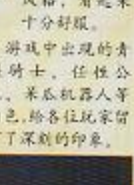 十分舒服。
游戏中出现的青
骑士、任性公
、呆瓜机器人等
色,给各位玩家留
了深刻的印象。